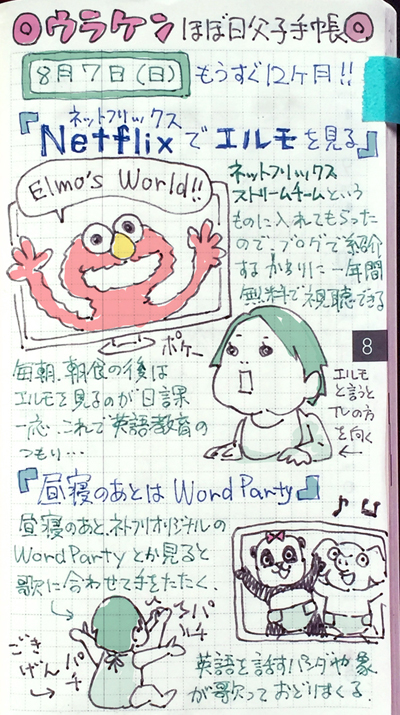 ◎ウラケン ほぼ日父子手帳◎
8月7日(日) もうすぐ12ヶ月!!
ネットフリックス
『Netflixでエルモを見る』
Elmo's World!!
ネットフリックス
ストリームチームという
ものに入れてもらった
ので、ブログで紹介
するかわりに一年間
無料で視聴できる
8
ポケー
毎朝、朝食の後は
エルモを見るのが日課
一応、これで英語教育の
つもり…
エルモ
と言うと
TVの方
を向く
『昼寝のあとは Word Party』
昼寝のあと、ネトフリオリジナルの
Word Partyとか見ると
歌に合わせて手をたたく。
パチ
パチ
ごき
げん
英語を話すパンダや象
が歌っておどりまくる。